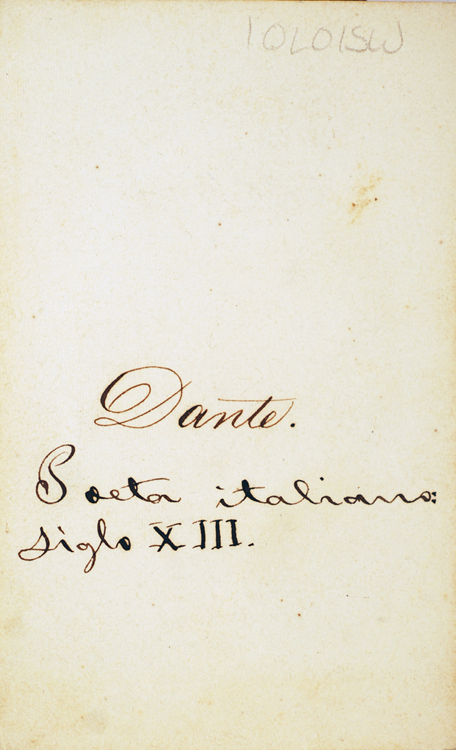 IOLOISW
Dante.
Poeta italiano:
siglo XIII.